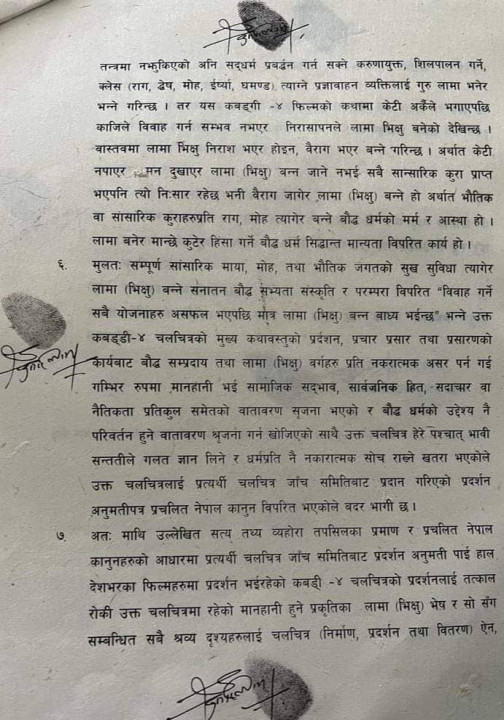 तन्त्रमा नझुकिएको अनि सद्धर्म प्रबर्द्धन गर्न सक्ने करुणायुक्त, शिलपालन गर्ने,
क्लेस (राग, द्वेष, मोह, ईर्ष्या, घमण्ड) त्याग्ने प्रज्ञावाहन व्यक्तिलाई गुरु लामा भनेर
भन्ने गरिन्छ । तर यस कबड्गी -४ फिल्मको कथामा केटी अर्कैले भगाएपछि
काजिले विवाह गर्न सम्भव नभएर निरासापनले लामा भिक्षु बनेको देखिन्छ ।
वास्तवमा लामा भिक्षु निराश भएर होइन, बैराग भएर बन्ने गरिन्छ । अर्थात केटी
नपाएर मन दुखाएर लामा (भिक्षु) बन्न जाने नभई सबै सान्सारिक कुरा प्राप्त
भएपनि त्यो निःसार रहेछ भनी बैराग जागेर लामा (भिक्षु) बन्ने हो अर्थात भौतिक
वा सांसारिक कुराहरुप्रति राग, मोह त्यागेर बन्ने बौद्ध धर्मको मर्म र आस्था हो ।
लामा बनेर मान्छे कुटेर हिंसा गर्ने बौद्ध धर्म सिद्धान्त मान्यता विपरित कार्य हो ।
६. मुलतः सम्पूर्ण सांसारिक माया, मोह, तथा भौतिक जगतको सुख सुविधा त्यागेर
लामा (भिक्षु) बन्ने सनातन बौद्ध सभ्यता संस्कृति र परम्परा विपरित "विवाह गर्ने
सबै योजनाहरु असफल भएपछि मात्र लामा (भिक्षु) बन्न बाध्य भईन्छ" भन्ने उक्त
कबड्डी-४ चलचित्रको मुख्य कथावस्तुको प्रर्दशन, प्रचार प्रसार तथा प्रसारणको
कार्यबाट बौद्ध सम्प्रदाय तथा लामा (भिक्षु) बर्गहरु प्रति नकरात्मक असर पर्न गई
गम्भिर रुपमा मानहानी भई सामाजिक सद्भाव, सार्वजनिक हित, सदाचार वा
नैतिकता प्रतिकुल समेतको वातावरण सृजना भएको र बौद्ध धर्मको उद्देश्य नै
परिवर्तन हुने वातावरण श्रृजना गर्न खोजिएको साथै उक्त चलचित्र हेरे पश्चात् भावी
सन्ततीले गलत ज्ञान लिने र धर्मप्रति नै नकारात्मक सोच राख्ने खतरा भएकोले
उक्त चलचित्रलाई प्रत्यर्थी चलचित्र जाँच समितिबाट प्रदान गरिएको प्रदर्शन
अनुमतीपत्र प्रचलित नेपाल कानुन विपरित भएकोले बदर भागी छ ।
७. अतः माथि उल्लेखित सत्य तथ्य व्यहोरा तपसिलका प्रमाण र प्रचलित नेपाल
कानुनहरुको आधारमा प्रत्यर्थी चलचित्र जाँच समितिबाट प्रदर्शन अनुमती पाई हाल
देशभरका फिल्महरुमा प्रदर्शन भईरहेको कबड्डी -४ चलचित्रको प्रदर्शनलाई तत्काल
रोकी उक्त चलचित्रमा रहेको मानहानी हुने प्रकृतिका लामा (भिक्षु) भेष र सो सँग
सम्बन्धित सबै श्रव्य दृश्यहरुलाई चलचित्र (निर्माण, प्रदर्शन तथा वितरण) ऐन,